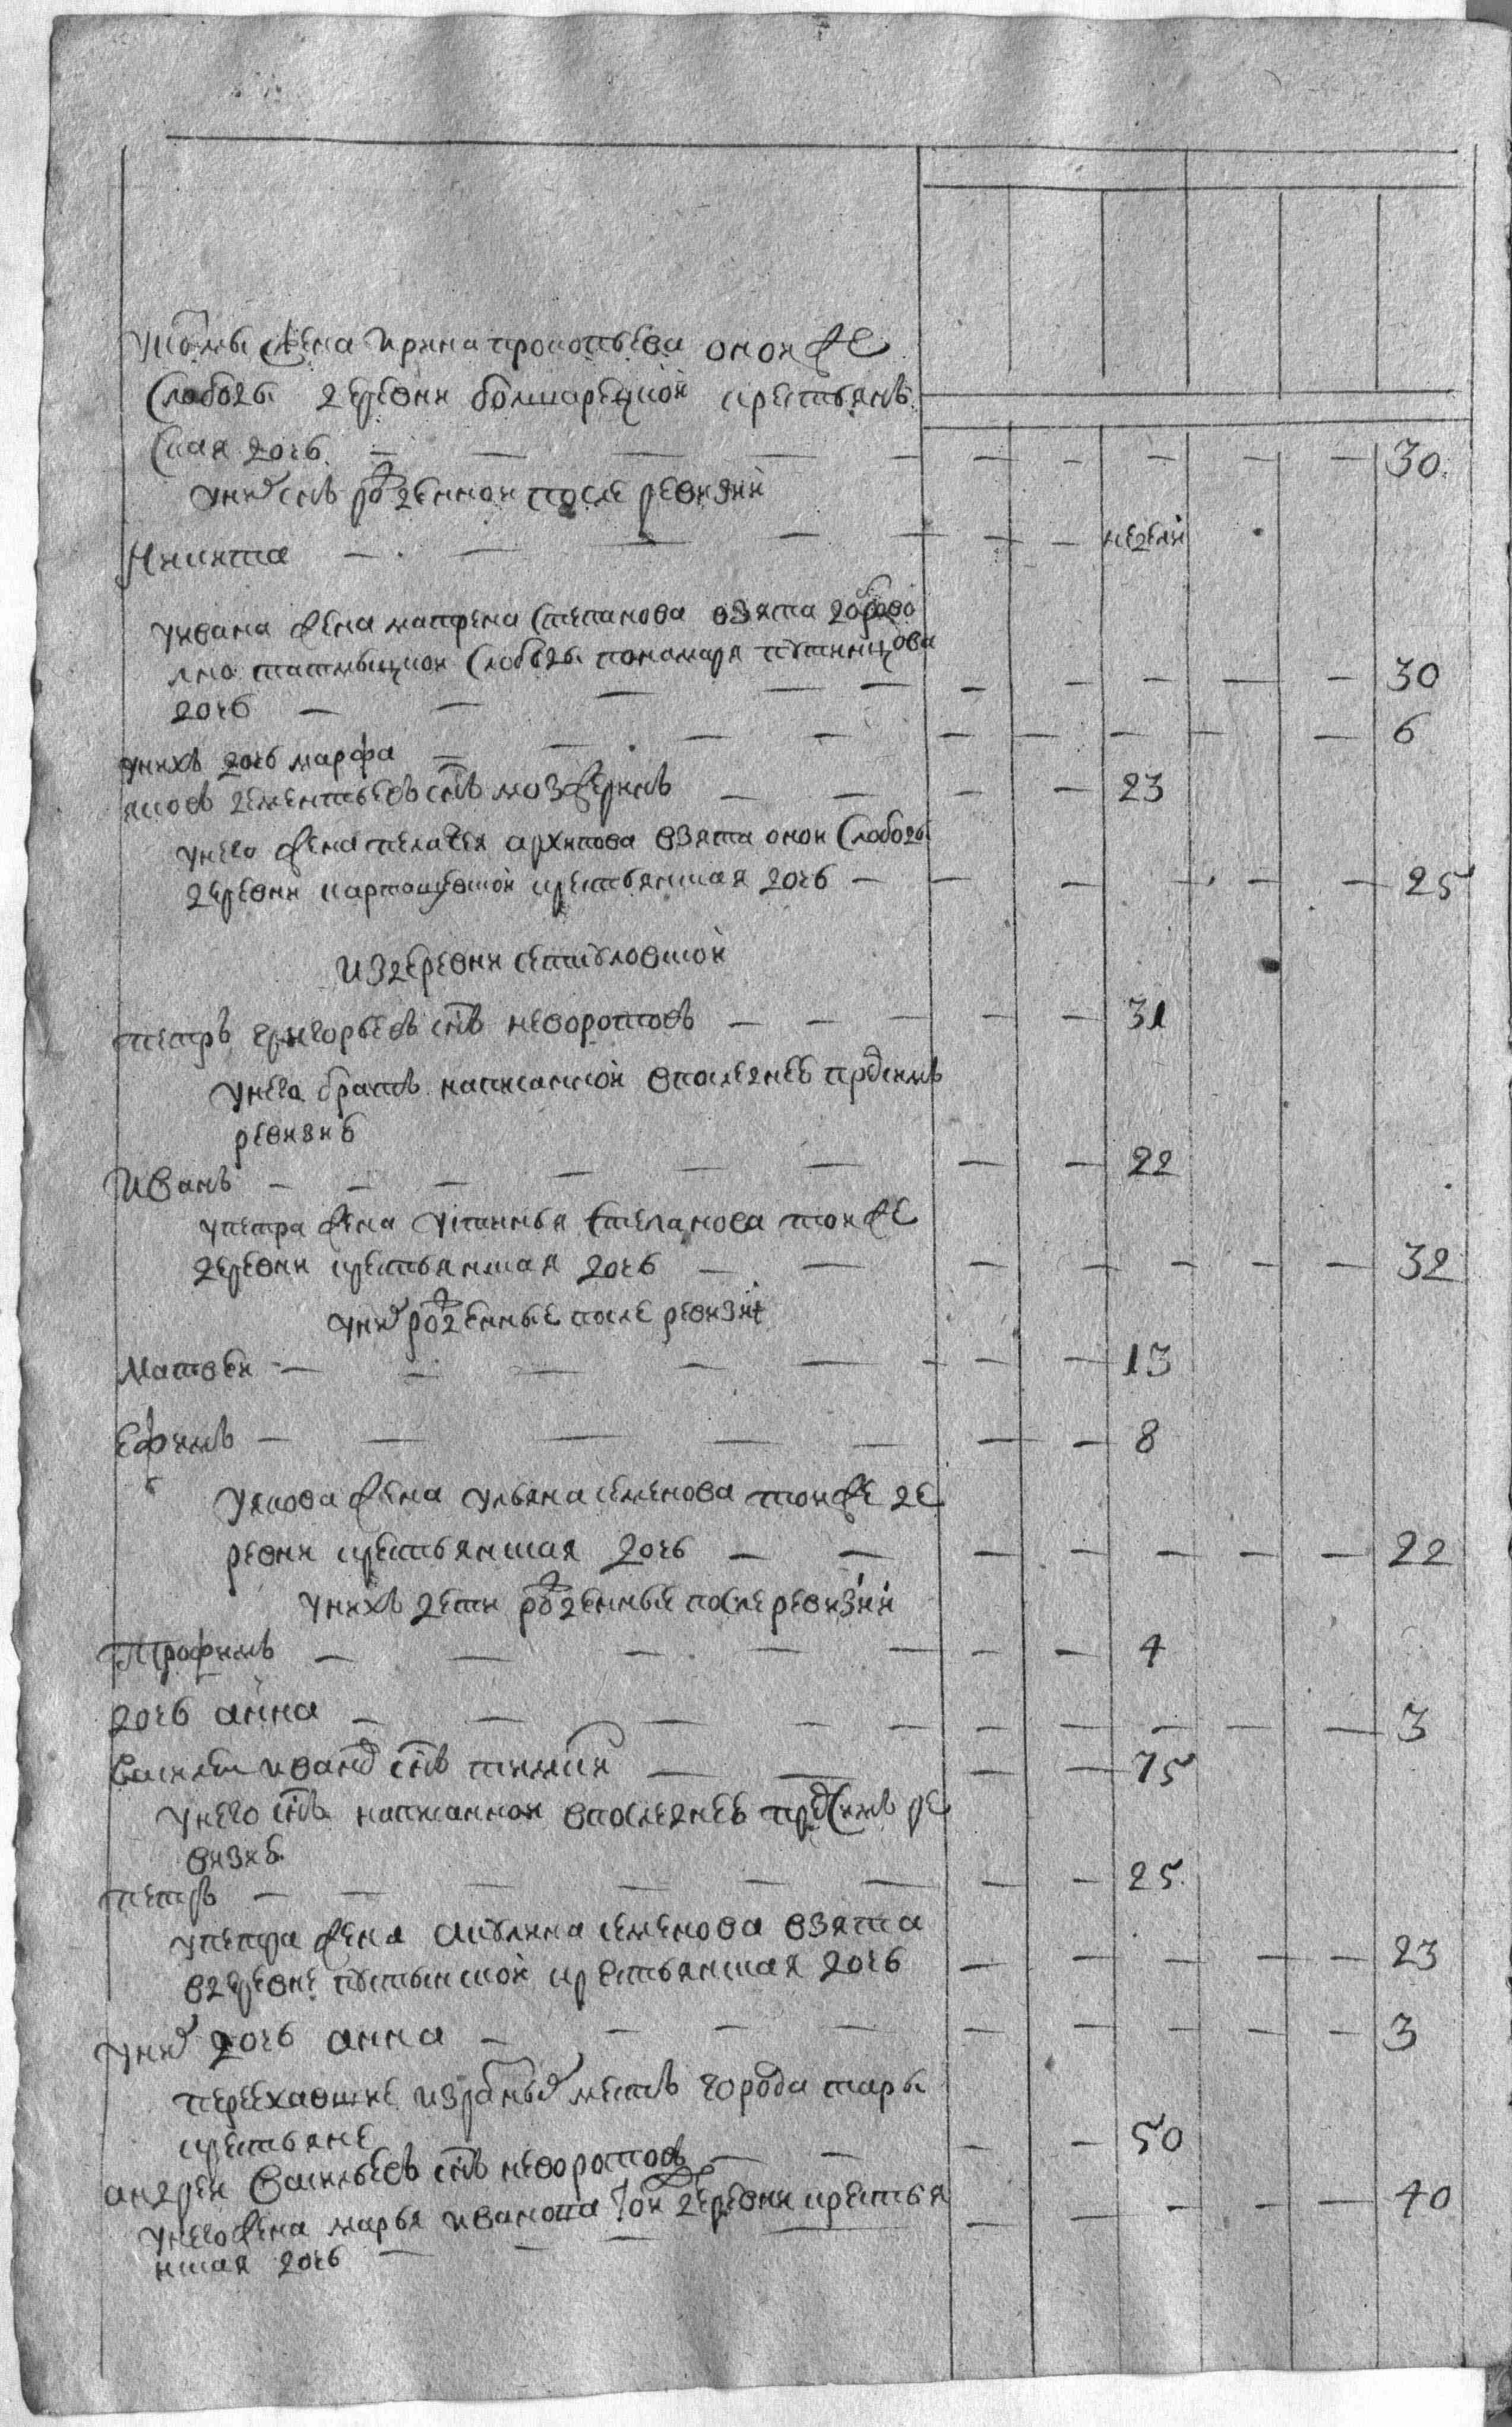 жена ирина прокопьева оной же
слободы деревни болшарецкой крестьянъ
ская дочь — — — — — — — — — — 30
у них снъ рожденной после ревизии
Никита — — — — — — — недели
у ивана жена матрена степанова взята
татмыцкои слободы пономаря
дочь — — — — — — — — — — 30
у нихъ дочь марфа — — — — — — — — — 6
яковъ дементьевъ снъ мозжеринъ — — — — 23
у него жена пелагея архипова взята оной слободы
деревни карташевской крестьянская дочь — — — — — — 25
из деревни секменовской
петръ григорьевъ снъ неворотовъ — — — — — 31
у него братъ написанной в последнеѣ пред симъ
ревизиѣ
Иванъ — — — — — — — — 22
у петра жена устинья степанова той же
деревни крестьянская дочь — — — — — — — 32
у них рожденные после ревизии
Матвеи — — — — — — — — 13
ефимъ — — — — — — — 8
у якова жена ульяна семенова той же де
ревни крестьянская дочь — — — — — — — 22
у нихъ дети рожденные после ревизии
Трофимъ — — — — — — — 4
дочь анна — — — — — — — — — — 3
василеи иванов снъ — — — — 75
у него снъ написанной в последнеѣ пред симъ ре
визиѣ
петръ — — — — — — — — 25
у петра жена акулина семенова взята
в деревне пустынской крестьянская дочь — — — — — 23
у них дочь анна — — — — — — — — — 3
переехавшие из разных местъ города тары
крестьяне
андреи васильевъ снъ неворотовъ — — — — 50
у него жена марья иванова той деревни крестья
нская дочь — — — — — — — — — 40